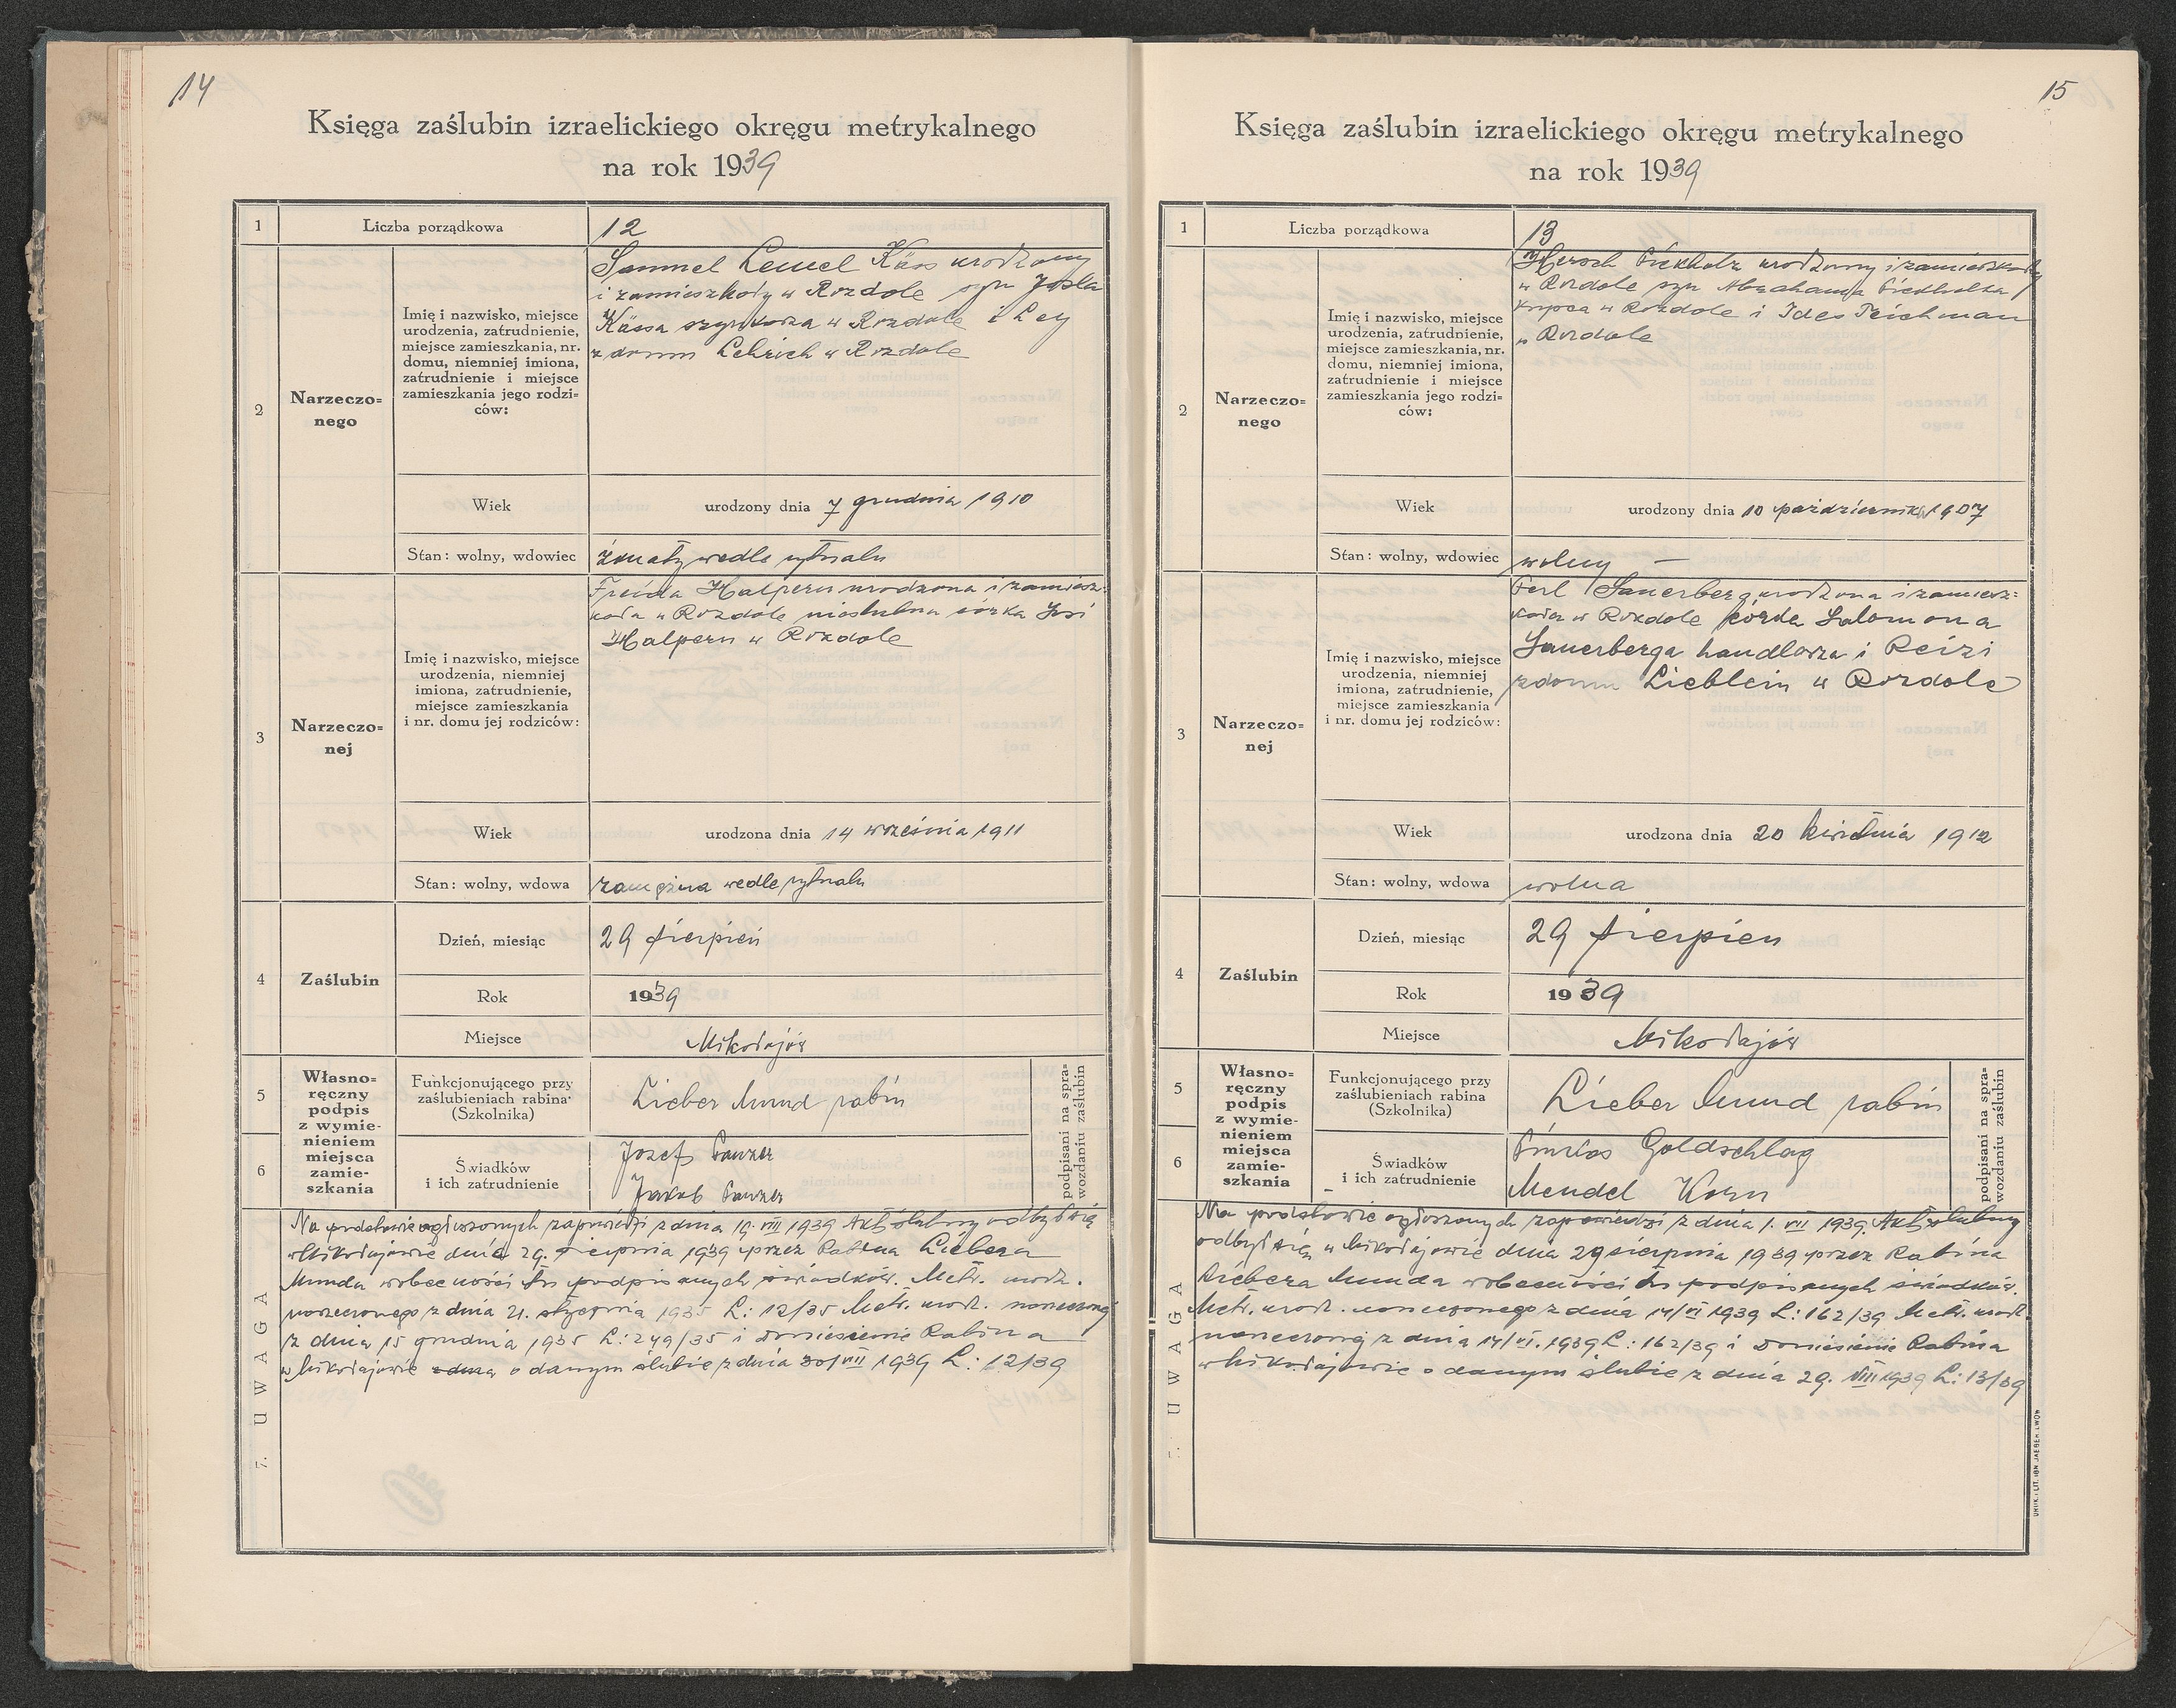 14
Księga zaślubin izraelickiego okręgu metrykalnego
na rok 1939
1
Liczba porządkowa
12
2
Narzeczo=
nego
Imię i nazwisko, miejsce
urodzenia, zatrudnienie,
miejsce zamieszkania, nr.
domu, niemniej imiona,
zatrudnienie i miejsce
zamieszkania jego rodzi=
ców:
Samuel Lemel Käss urodzony
i zamieszkały w Rozdole syn Josla
Kässa szynkarza w Rozdole i Ley
z domu Lehrich w Rozdole
Wiek
urodzony dnia 7 grudnia 1910
Stan: wolny, wdowiec
żonaty wedle rytuału
3
Narzeczo=
nej
Imię i nazwisko, miejsce
urodzenia, niemniej
imiona, zatrudnienie,
miejsce zamieszkania
i nr. domu jej rodziców:
Freida Halpern urodzona i zamiesz-
kała w Rozdole nieślubna córka Josi
Halpern w Rozdole
Wiek
urodzona dnia 14 września 1911
Stan: wolny, wdowa
zamężna wedle rytuału
4
Zaślubin
Dzień, miesiąc
29 sierpień
Rok
1939
Miejsce
Mikołajów
5
6
Własno=
ręczny
podpis
z wymie-
nieniem
miejsca
zamie-
szkania
Funkcjonującego przy
zaślubieniach rabina
(Szkolnika)
Lieber Mund rabin
Świadków
i ich zatrudnienie
Jozef
Jakub
podpisani na spra-
wozdaniu zaślubin
7. UWAGA
Na podstawie ogłoszonych zapowiedzi z dnia 19. VIII 1939 Akt ślubny odbył się
w Mikołajowie dnia 29. sierpnia 1939 przez Rabina Liebera
Munda w obecności tu podpisanych świadków. Metr. urodz.
narzeczonego z dnia 21. stycznia 1935 L: 12/35 Metr. urodz. narzeczonej
z dnia 15 grudnia 1935 L: 249/35 i doniesienie Rabina
w Mikołajowie o danym ślubie z dnia 30/VIII 1939 L: 12/39
15
Księga zaślubin izraelickiego okręgu metrykalnego
na rok 1939
1
Liczba porządkowa
13
2
Narzeczo=
nego
Imię i nazwisko, miejsce
urodzenia, zatrudnienie,
miejsce zamieszkania, nr.
domu, niemniej imiona,
zatrudnienie i miejsce
zamieszkania jego rodzi=
ców:
Hersch urodzony i zamieszkały
w Rozdole syn Abrahama
kupca w Rozdole i Ides Teichman
w Rozdole
Wiek
urodzony dnia 10 październik 1907
Stan: wolny, wdowiec
wolny —
3
Narzeczo=
nej
Imię i nazwisko, miejsce
urodzenia, niemniej
imiona, zatrudnienie,
miejsce zamieszkania
i nr. domu jej rodziców:
Perl Sauerberg urodzona i zamiesz=
kała w Rozdole córka Salomona
Sauerberga handlarza i Reizi
z domu Lieblein w Rozdole
Wiek
urodzona dnia 20 kwietnia 1912
Stan: wolny, wdowa
wolna
4
Zaślubin
Dzień, miesiąc
29 sierpien
Rok
1939
Miejsce
Mikołajów
5
6
Własno=
ręczny
podpis
z wymie-
nieniem
miejsca
zamie-
szkania
Funkcjonującego przy
zaślubieniach rabina
(Szkolnika)
Lieber Mund rabin
Świadków
i ich zatrudnienie
Pinkas Goldschlag
Mendel Korn
podpisani na spra-
wozdaniu zaślubin
7. UWAGA
Na podstawie ogłoszonych zapowiedzi z dnia 1. VII 1939. Akt ślubny
odbył się w Mikołajowie dnia 29 sierpnia 1939 przez Rabina
Liebera Munda w obecności tu podpisanych świadków.
Metr. urodz. narzeczonego z dnia 14/VI 1939 L: 162/39 Metr. urodz.
narzeczonej z dnia 14/VI. 1939 L: 162/39 i doniesienie Rabina
w Mikołajowie o danym ślubie z dnia 29. VIII 1939 L: 13/39